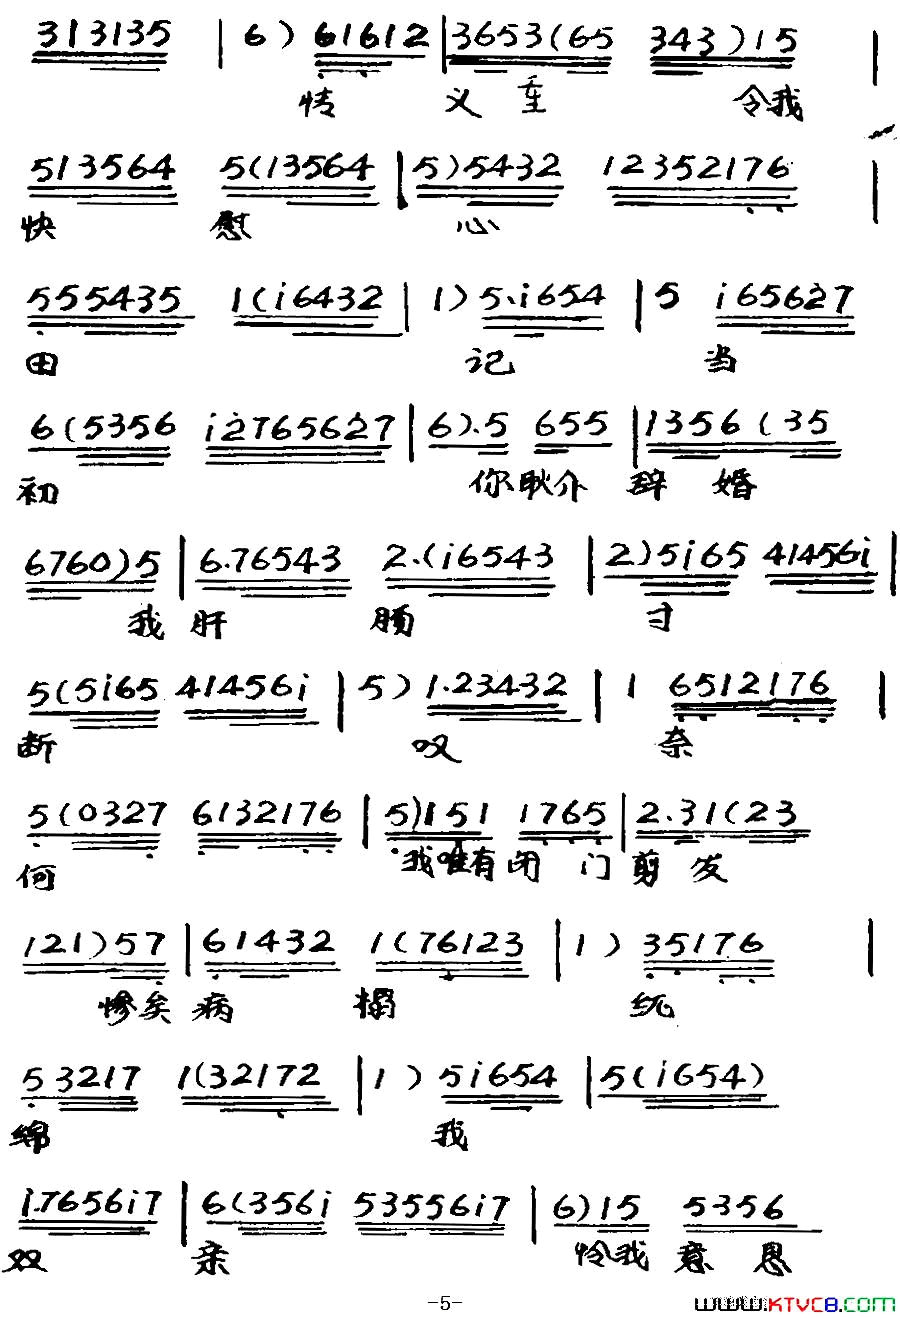 313135 | 6 ) 61612 | 3653(65 343 ) 15 |
情 义 至 令我
513564 5(13564 | 5)5432 12352176 |
快 慰 心
555435 1(i6432 | 1) 5.i654 | 5 i65627
田 记 当
6(5356 i2765627 | 6).5 655 | 1356(35
初 你耿介 辞 婚
6760)5 | 6.76543 2.(i6543 | 2)5i65 41456i |
我 肝 肠 寸
5(5i65 41456i | 5) 1.23432 | 1 6512176 |
断 叹 奈
5(0327 6132176 | 5)151 1765 | 2.31(23
何 我唯有闭 门 剪 发
121)57 | 61432 1(76123 | 1 ) 35176 |
惨矣 病 榻 缠
53217 1(32172 | 1 ) 5i654 | 5(i654)
绵 我
i.7656i7 | 6(356i 53556i7 | 6)15 5356
双 亲 怜我 意 恩
-5-
www.KTVC8.COM